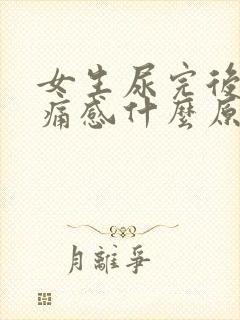 女生尿完後
痛感什麼原
月離爭